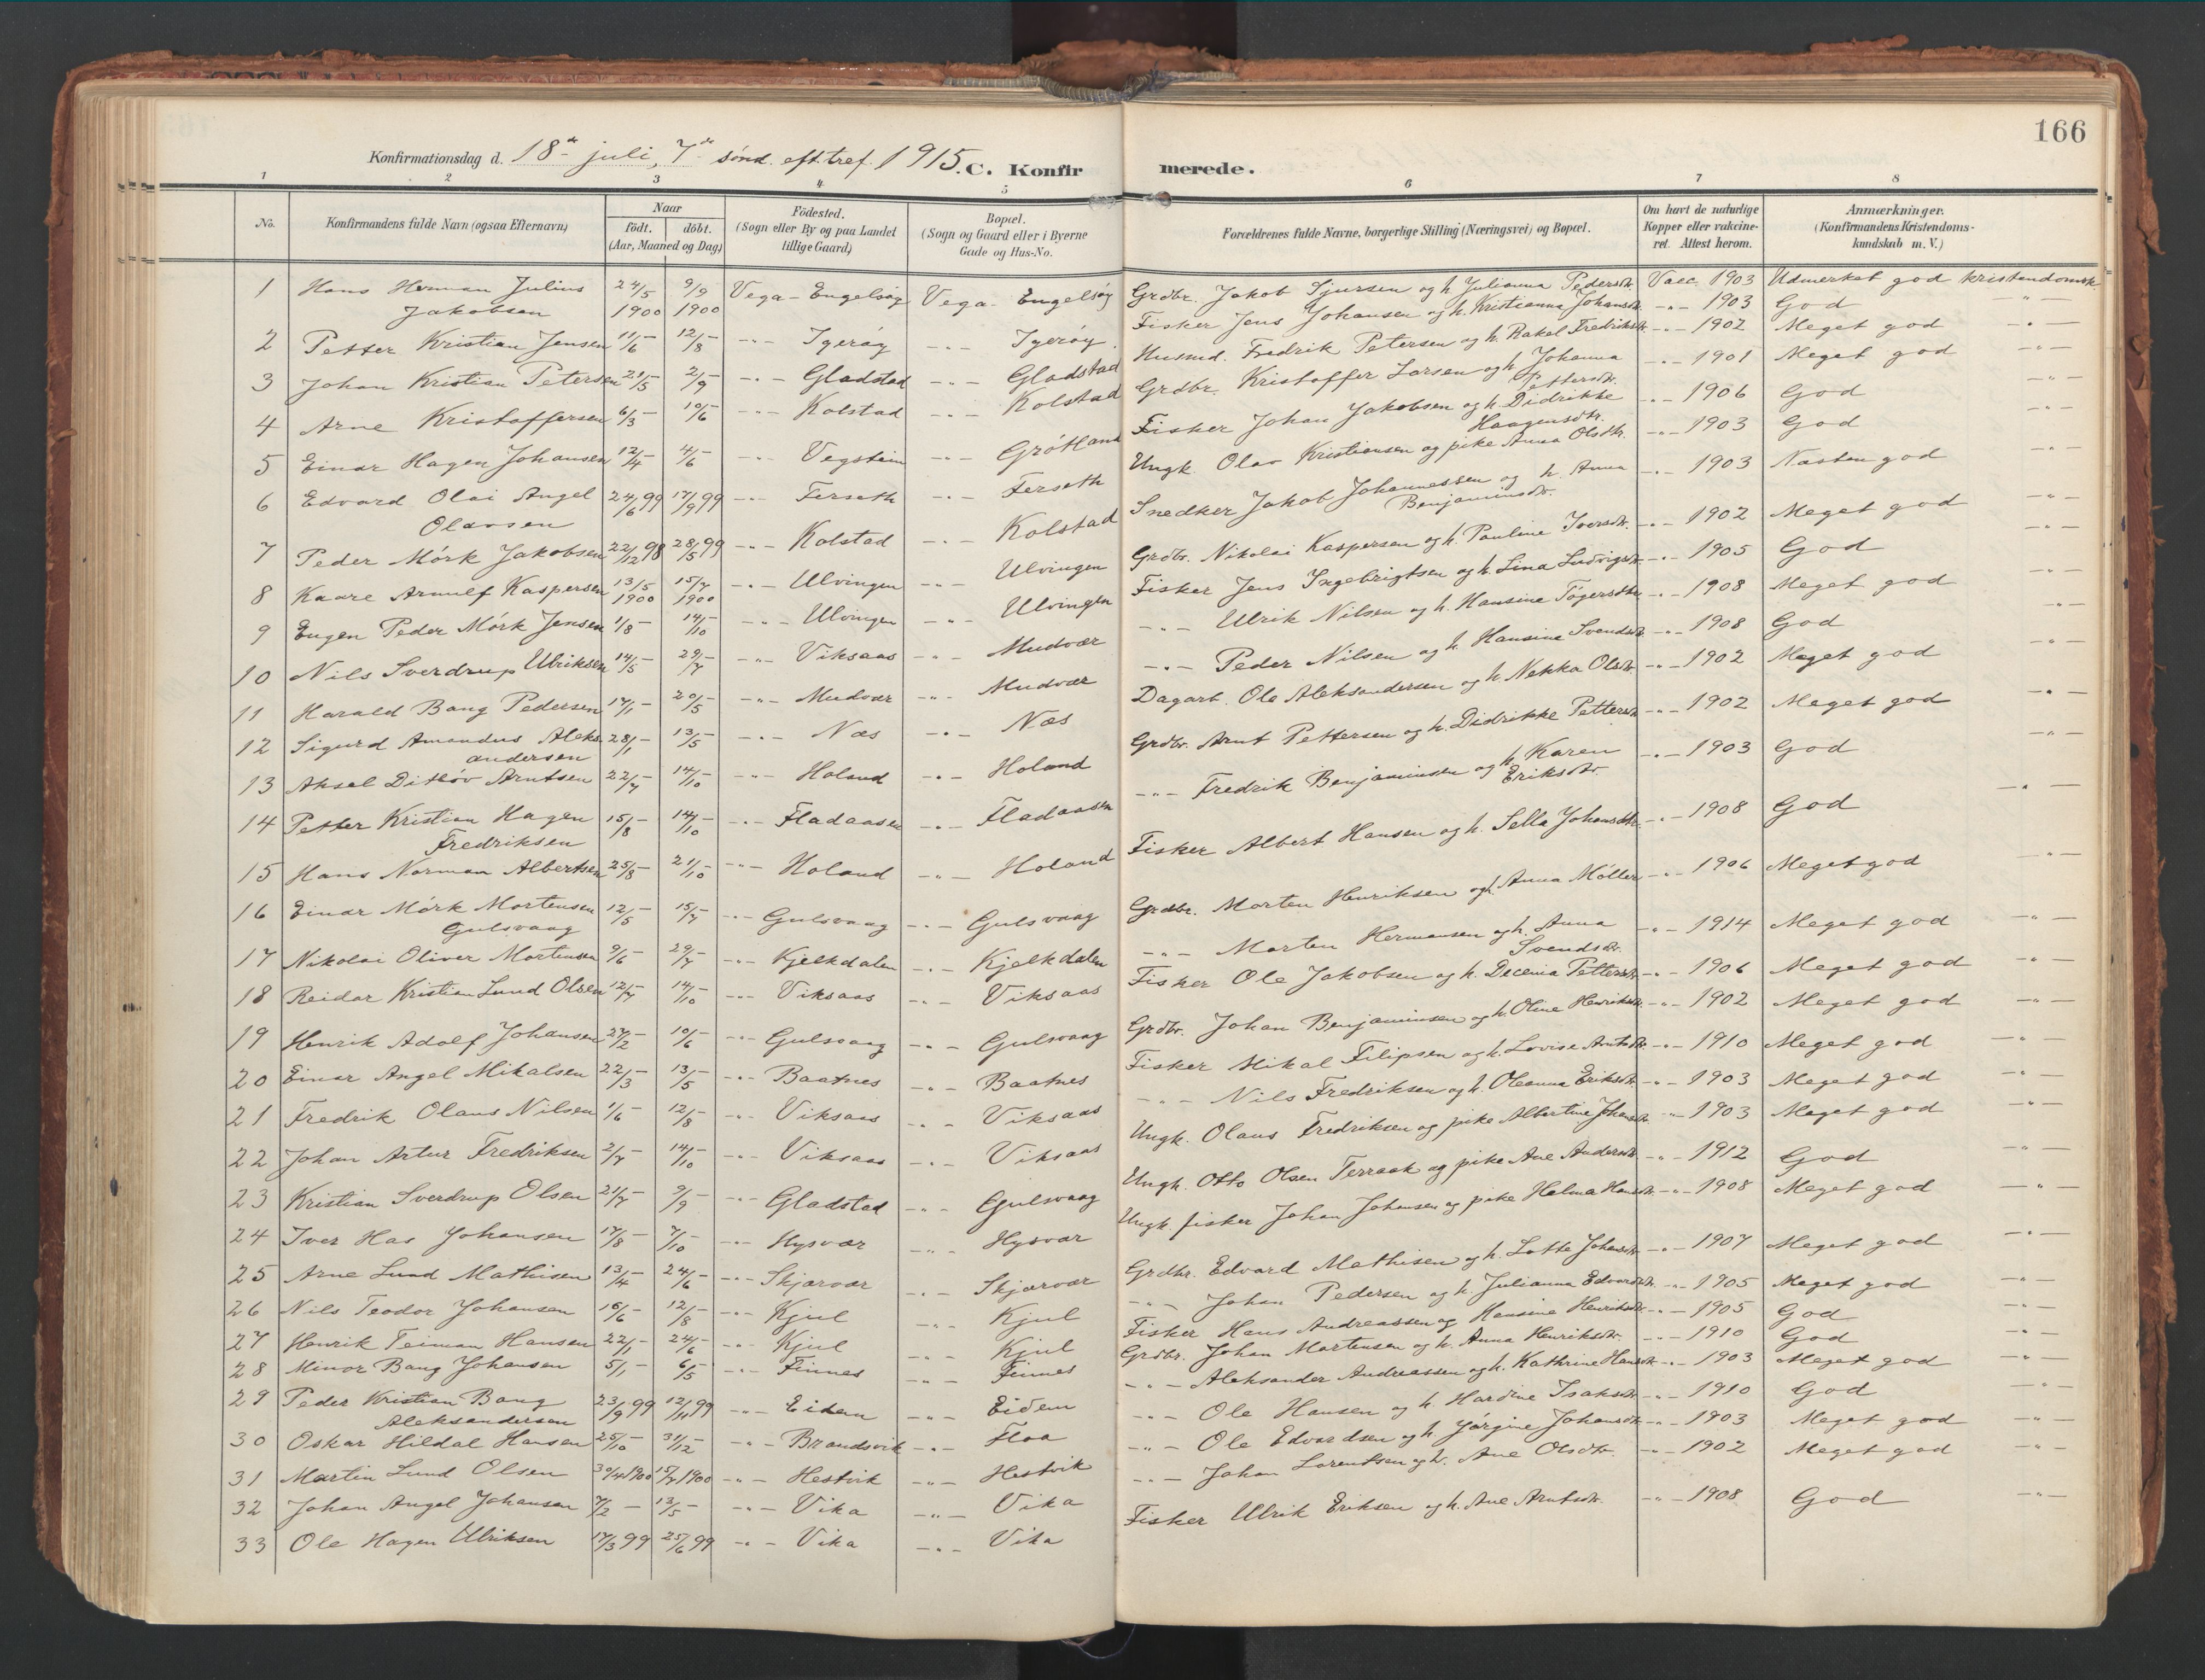 166
Konfirmationsdag d. 18de juli, 7de sønd. eft. tref. 1915. C. Konfirmerede.
1 2 3 4 5 6 7 8
No. Konfirmandens fulde Navn (ogsaa Efternavn) Naar født. døbt. (Aar, Maaned og Dag) Födested. (Sogn eller By og paa Landet tillige Gaard) Bopæl. (Sogn og Gaard eller i Byerne Gade og Hus-No. Forældrenes fulde Navne, borgerlige Stilling (Næringsvei) og Bopæl. Om havt de naturlige Kopper eller vakcineret. Attest herom. Anmærkninger. (Konfirmandens Kristendomskundskab m. V.)
1 Hans Herman Julius Jakobsen 24/5 1900 9/9 1900 Vega - Engelsøy Vega - Engelsøy Grdbr. Jakob Sjursen og h. Julianna Pedersdtr. Vacc. 1903 Udmerket god kristendomsk.
2 Petter Kristian Jensen 11/6 - 12/8 - -"- Igerøy -"- Igerøy Fisker Jens Johansen og h. Kristianna Johansdtr. -"- 1903 God -"-
3 Johan Kristian Petersen 21/5 - 2/9 - -"- Gladstad -"- Gladstad Husmd. Fredrik Petersen og h. Rakel Fredriksdtr. -"- 1902 Meget god -"-
4 Arne Kristoffersen 6/3 - 10/6 - -"- Kolstad -"- Kolstad Grdbr. Kristoffer Larsen og h. Johanna Pettersdtr. -"- 1901 Meget god -"-
5 Einar Hagen Johansen 12/4 - 4/6 - -"- Vegstein -"- Grøtland Fisker Johan Jakobsen og h. Didrikke Haagensdtr. -"- 1906 God -"-
6 Edvard Olai Angel Olavsen 24/6 99 17/9 99 -"- Ferseth -"- Ferseth Ungk. Olav Kristiansen og pike Anna Olsdtr. -"- 1903 God -"-
7 Peder Mørk Jakobsen 22/12 98 28/5 99 -"- Kolstad -"- Kolstad Snedker Jakob Johannessen og h. Anna Benjaminsdtr. -"- 1903 Næsten god -"-
8 Kaare Arnulf Kaspersen 13/5 1900 15/7 1900 -"- Ulvingen -"- Ulvingen Grdbr. Nikolai Kaspersen og h. Pauline Iversdtr. -"- 1902 Meget god -"-
9 Eugen Peder Mørk Jensen 1/8 - 14/10 - -"- Ulvingen -"- Ulvingen Fisker Jens Ingebrigtsen og h. Lina Ludvigsdtr. -"- 1905 God -"-
10 Nils Sverdrup Ulriksen 14/5 - 29/7 - -"- Viksaas -"- Mudvær -"- Ulrik Nilsen og h. Hansine Tögersdtr. -"- 1908 Meget god -"-
11 Harald Bang Pedersen 17/1 - 20/5 - -"- Mudvær -"- Mudvær -"- Peder Nilsen og h. Hansine Svendsdtr. -"- 1908 God -"-
12 Sigurd Amandus Aleksandersen 28/1 - 13/5 - -"- Næs -"- Næs Dagarb. Ole Aleksandersen og h. Nekka Olsdtr. -"- 1902 Meget god -"-
13 Aksel Ditløv Arntsen 22/7 - 14/10 - -"- Holand -"- Holand Grdbr. Arnt Pettersen og h. Didrikke Pettersdtr. -"- 1902 Meget god -"-
14 Petter Kristian Hagen Fredriksen 15/8 - 14/10 - -"- Fladaasen -"- Fladaasen -"- Fredrik Benjaminsen og h. Karen Eriksdtr. -"- 1903 God -"-
15 Hans Norman Albertsen 25/8 - 21/10 - -"- Holand -"- Holand Fisker Albert Hansen og h. Sella Johansdtr. -"- 1908 God -"-
16 Einar Mørk Mortensen Gulsvaag 12/5 - 15/7 - -"- Gulsvaag -"- Gulsvaag Grdbr. Morten Henriksen og h. Anna Möller -"- 1906 Meget god -"-
17 Nikolai Oliver Mortensen 9/6 - 29/7 - -"- Kjelkdalen -"- Kjelkdalen -"- Morten Hermansen og h. Anna Svendsdtr. -"- 1914 Meget god -"-
18 Reidar Kristian Lund Olsen 12/7 - 14/10 - -"- Viksaas -"- Viksaas Fisker Ole Jakobsen og h. Decena Pettersdtr. -"- 1906 Meget god -"-
19 Henrik Adolf Johansen 27/2 - 10/6 - -"- Gulsvaag -"- Gulsvaag Grdbr. Johan Benjaminsen og h. Oline Henriksdtr. -"- 1902 Meget god -"-
20 Einar Angel Mikalsen 22/3 - 13/5 - -"- Baatnes -"- Baatnes Fisker Mikal Filipsen og h. Lovise Arntsdtr. -"- 1910 Meget god -"-
21 Fredrik Olaus Nilsen 1/6 - 12/8 - -"- Viksaas -"- Viksaas -"- Nils Fredriksen og h. Oleanna Eriksdtr. -"- 1903 Meget god -"-
22 Johan Artur Fredriksen 2/7 - 14/10 - -"- Viksaas -"- Viksaas Ungk. Olaus Fredriksen og pike Albertine Johansdtr. -"- 1903 Meget god -"-
23 Kristian Sverdrup Olsen 21/7 - 9/9 - -"- Gladstad -"- Gulsvaag Ungk. Otto Olsen Terraak og pike Ane Andersdtr. -"- 1912 God -"-
24 Iver Has Johansen 17/8 - 7/10 - -"- Hysvær -"- Hysvær Ungk. fisker Johan Johansen og pike Helma Hansdtr. -"- 1908 Meget god -"-
25 Arne Lund Mathisen 13/4 - 24/6 - -"- Skjærvær -"- Skjærvær Grdbr. Edvard Mathisen og h. Lotte Johansdtr. -"- 1907 Meget god -"-
26 Nils Teodor Johansen 16/6 - 12/8 - -"- Kjul -"- Kjul -"- Johan Pedersen og h. Julianna Edvardsdtr. -"- 1905 Meget god -"-
27 Henrik Teiman Hansen 22/1 - 24/6 - -"- Kjul -"- Kjul Fisker Hans Andreassen og Hansine Henriksdtr. -"- 1905 God -"-
28 Minor Bang Johansen 5/1 - 6/5 - -"- Finnes -"- Finnes Grdbr. Johan Martensen og h. Anna Henriksdtr. -"- 1910 God -"-
29 Peder Kristian Bang Aleksandersen 23/9 99 12/11 99 -"- Eidem -"- Eidem -"- Aleksander Andreassen og h. Kathrine Hansdtr. -"- 1903 Meget god -"-
30 Oskar Hildal Hansen 25/10 - 31/12 - -"- Brandsvik -"- Floa -"- Ole Hansen og h. Hardine Isaksdtr. -"- 1910 God -"-
31 Martin Lund Olsen 30/4 1900 15/7 1900 -"- Hestvik -"- Hestvik -"- Ole Edvardsen og h. Jørgine Johansdtr. -"- 1903 Meget god -"-
32 Johan Angel Johansen 7/2 - 13/5 - -"- Vika -"- Vika -"- Johan Lorentsen og h. Ane Olsdtr. -"- 1902 Meget god -"-
33 Ole Hagen Ulriksen 17/3 99 25/6 99 -"- Vika -"- Vika Fisker Ulrik Eriksen og h. Ane Arntsdtr. -"- 1908 God -"-